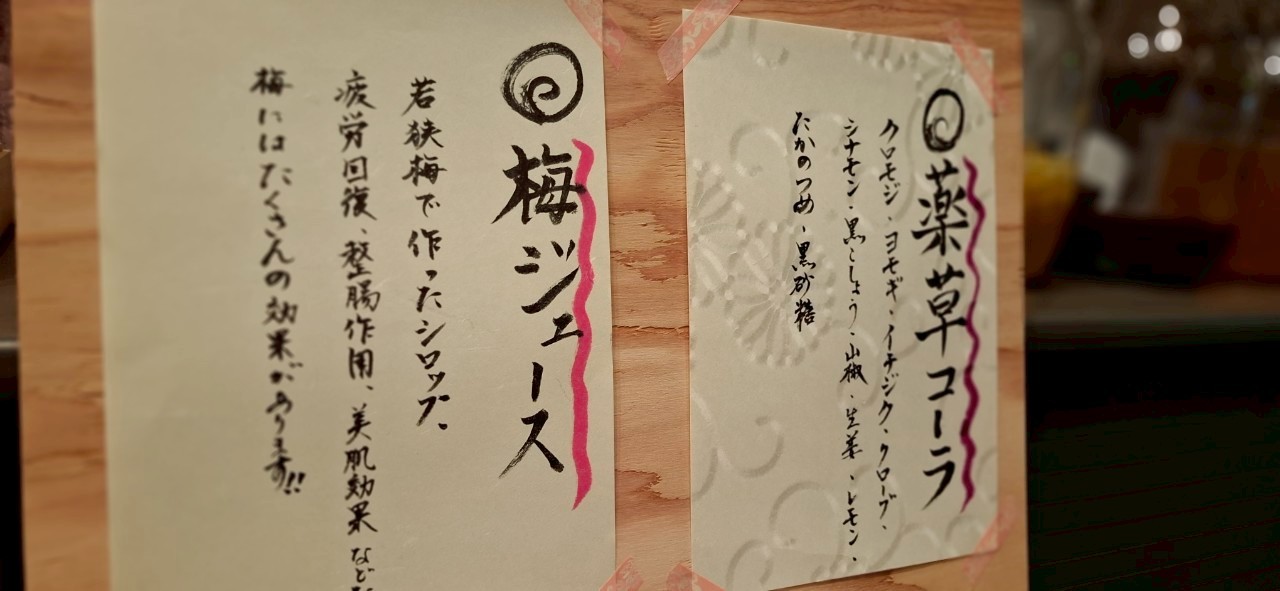 薬草コーラ
クロモジ、ヨモギ、イチジク、クローブ、
シナモン、黒こしょう、山椒、生姜、レモン、
たかのつめ、黒砂糖
梅ジュース
若狭梅で作ったシロップ。
疲労回復、整腸作用、美肌効果など
梅にはたくさんの効果があります!!